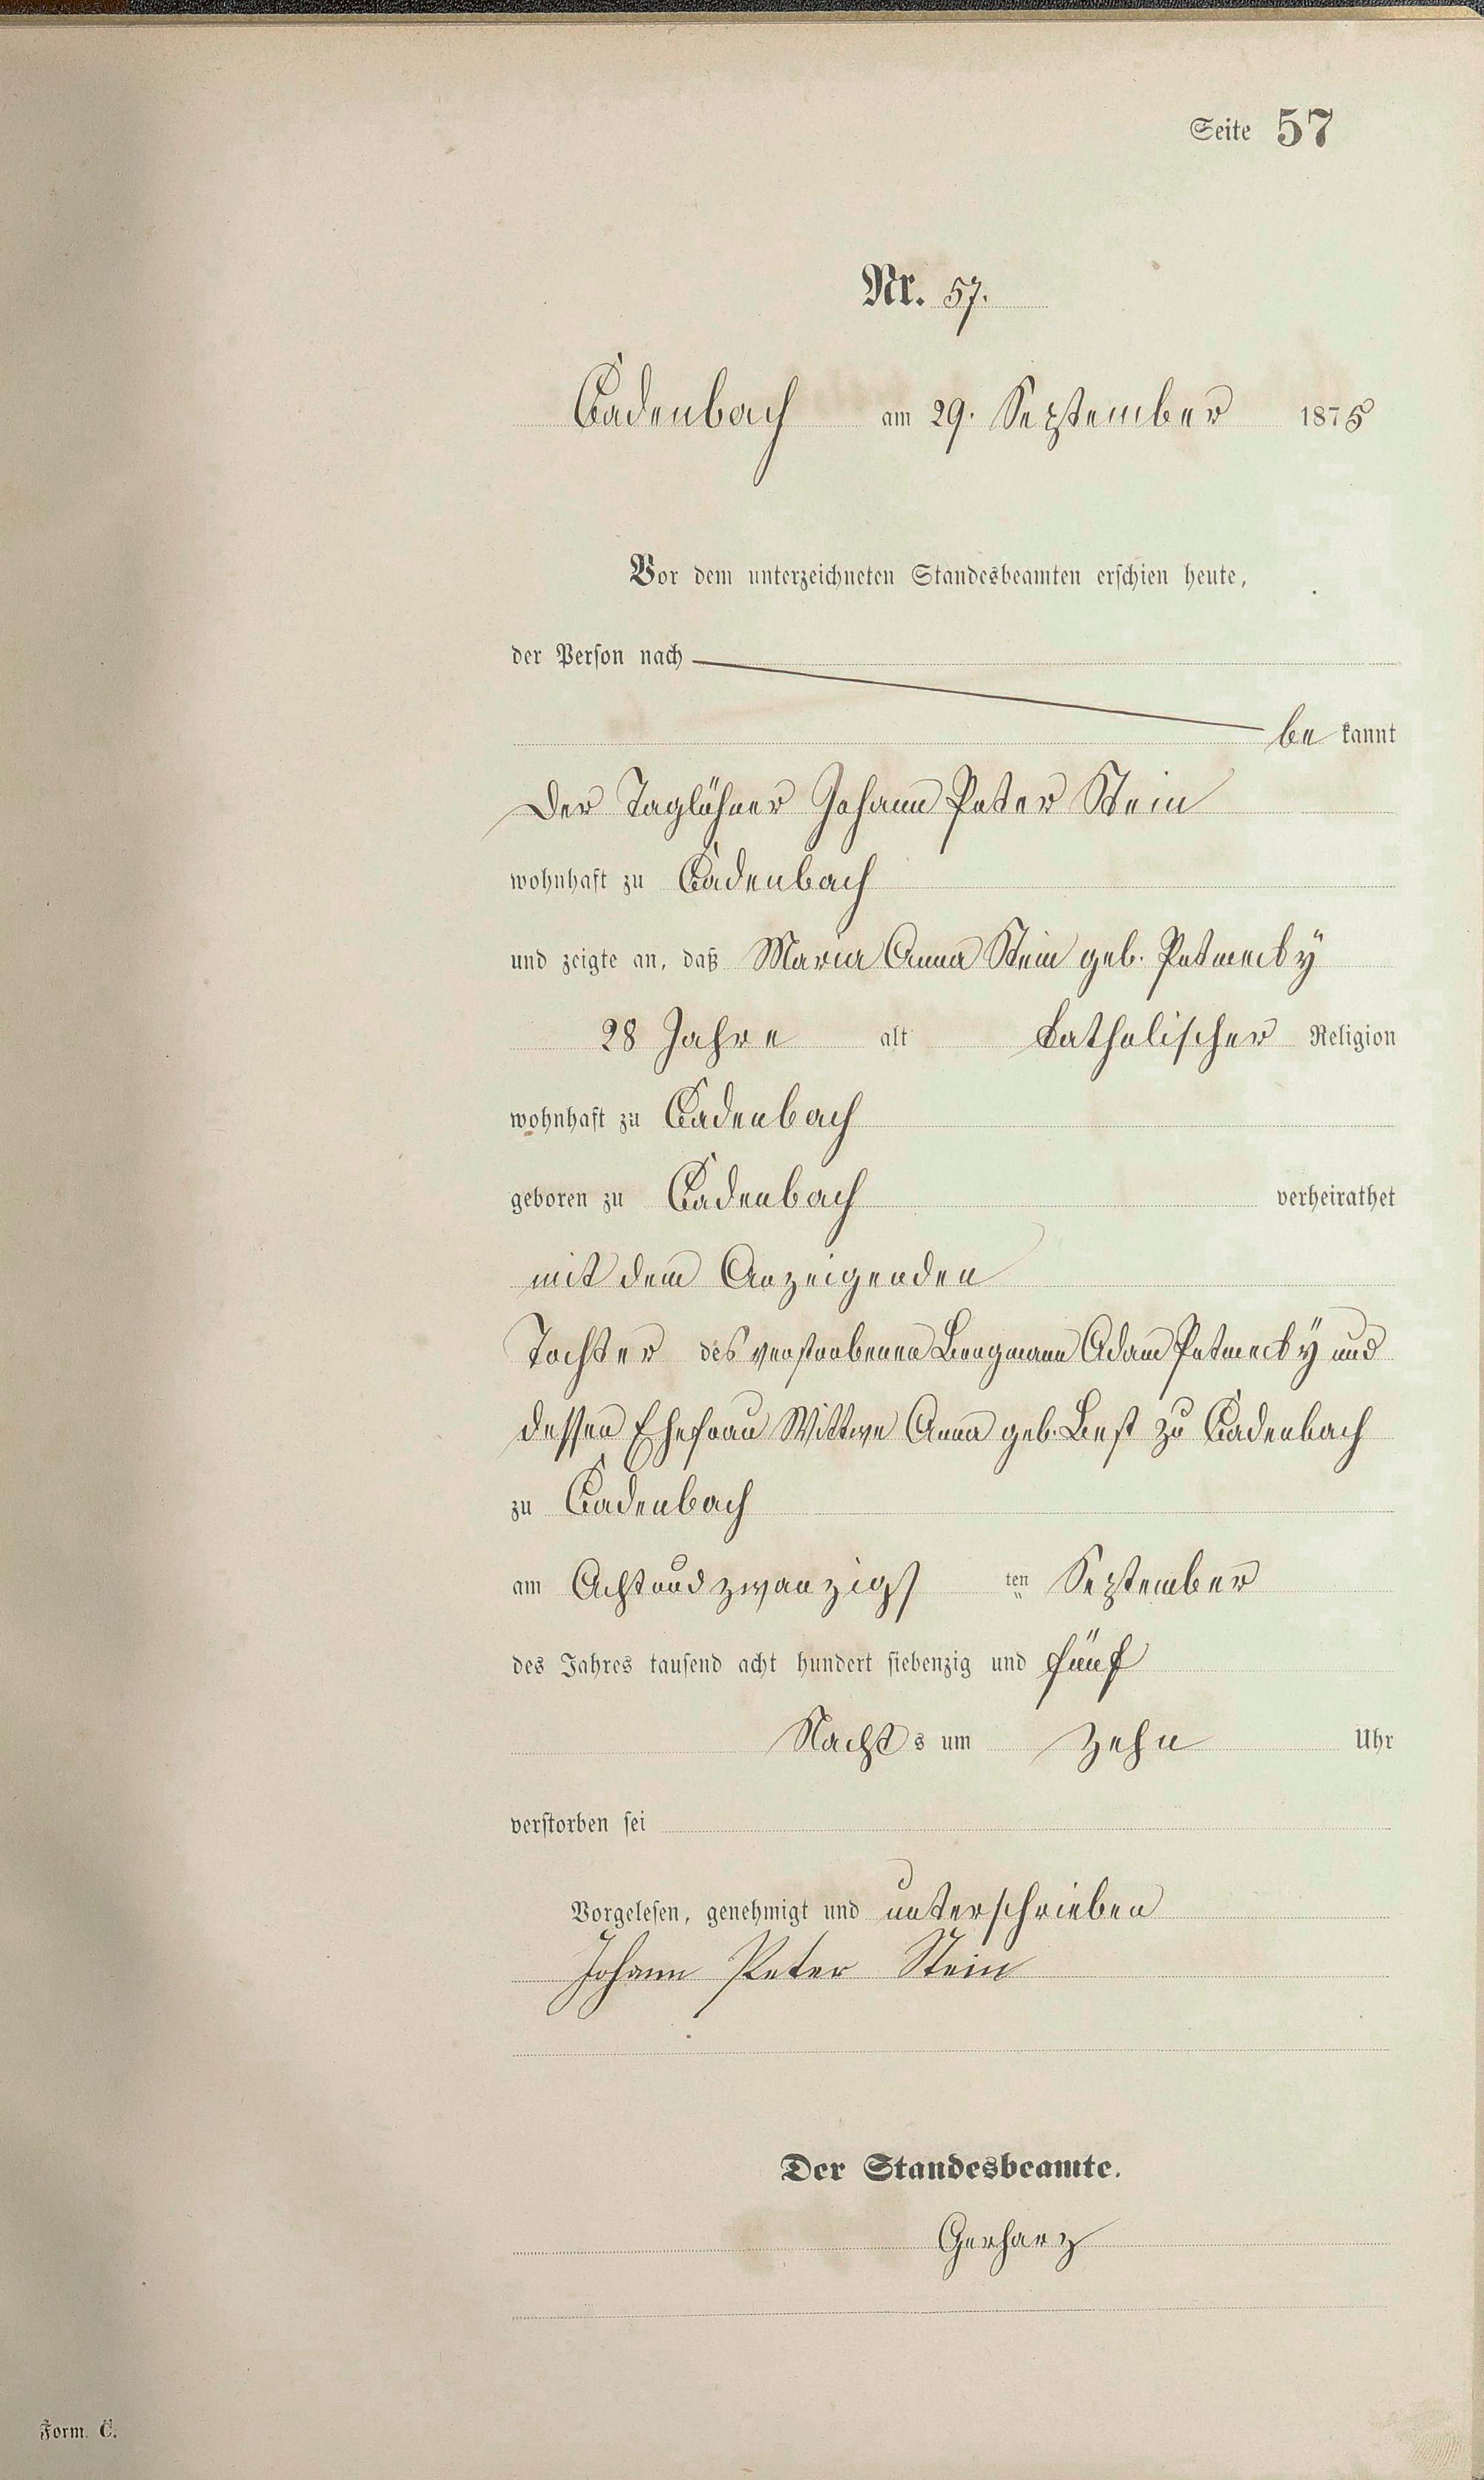 Seite 57
Nr. 57.
Cadenbach am 29. September 1875
Vor dem unterzeichneten Standesbeamten erschien heute,
der Person nach
be kannt
Der Taglöhner Johann Peter Stein
wohnhaft zu Cadenbach
und zeigte an, daß Maria Anna Stein geb. Petmecky
28 Jahre alt katholischer Religion
wohnhaft zu Cadenbach
geboren zu Cadenbach verheirathet
mit dem Anzeigenden
Tochter des verstorbenen Bergmann Adam Petmecky und
dessen Ehefrau Wittwe Anna geb. Best zu Cadenbach
zu Cadenbach
am Achtundzwanzigs ten September
des Jahres tausend acht hundert siebenzig und fünf
Nacht s um zehn Uhr
verstorben sei
Vorgelesen, genehmigt und unterschrieben
Johann Peter Stein
Der Standesbeamte.
Gerharz
Form. C.